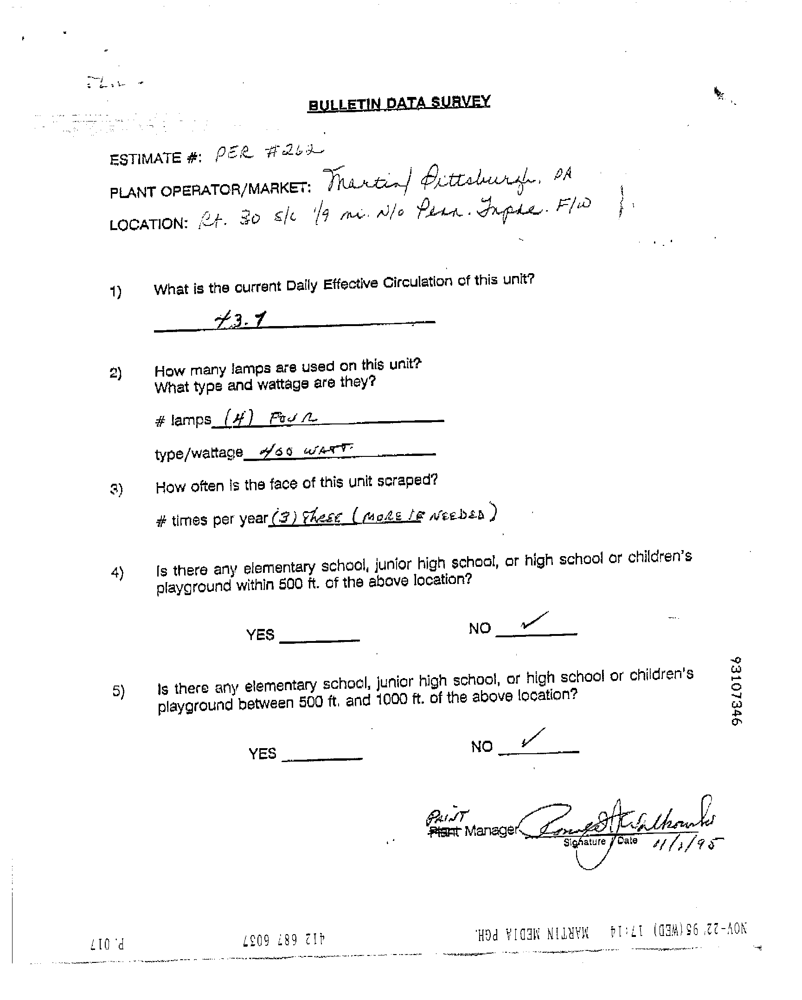 BULLETIN DATA SURVEY
ESTIMATE #: PER #262
PLANT OPERATOR/MARKET: Martin/ Pittsburgh, PA
LOCATION: Rt. 30 s/l 1/9 mi. N/o Penn. Tnpke. F/W
1) What is the current Daily Effective Circulation of this unit?
43.9
2) How many lamps are used on this unit?
What type and wattage are they?
# lamps (4) FOUR
type/wattage 400 WATT.
3) How often is the face of this unit scraped?
# times per year (3) THREE (MORE IF NEEDED)
4) Is there any elementary school, junior high school, or high school or children's
playground within 500 ft. of the above location?
YES NO ✓
5) Is there any elementary school, junior high school, or high school or children's
playground between 500 ft. and 1000 ft. of the above location?
YES NO ✓
93107346
PAINT
Plant Manager
Signature / Date 11/1/95
NOV-22'95(WED) 17:14 MARTIN MEDIA PGH. 412 687 6037 P. 017